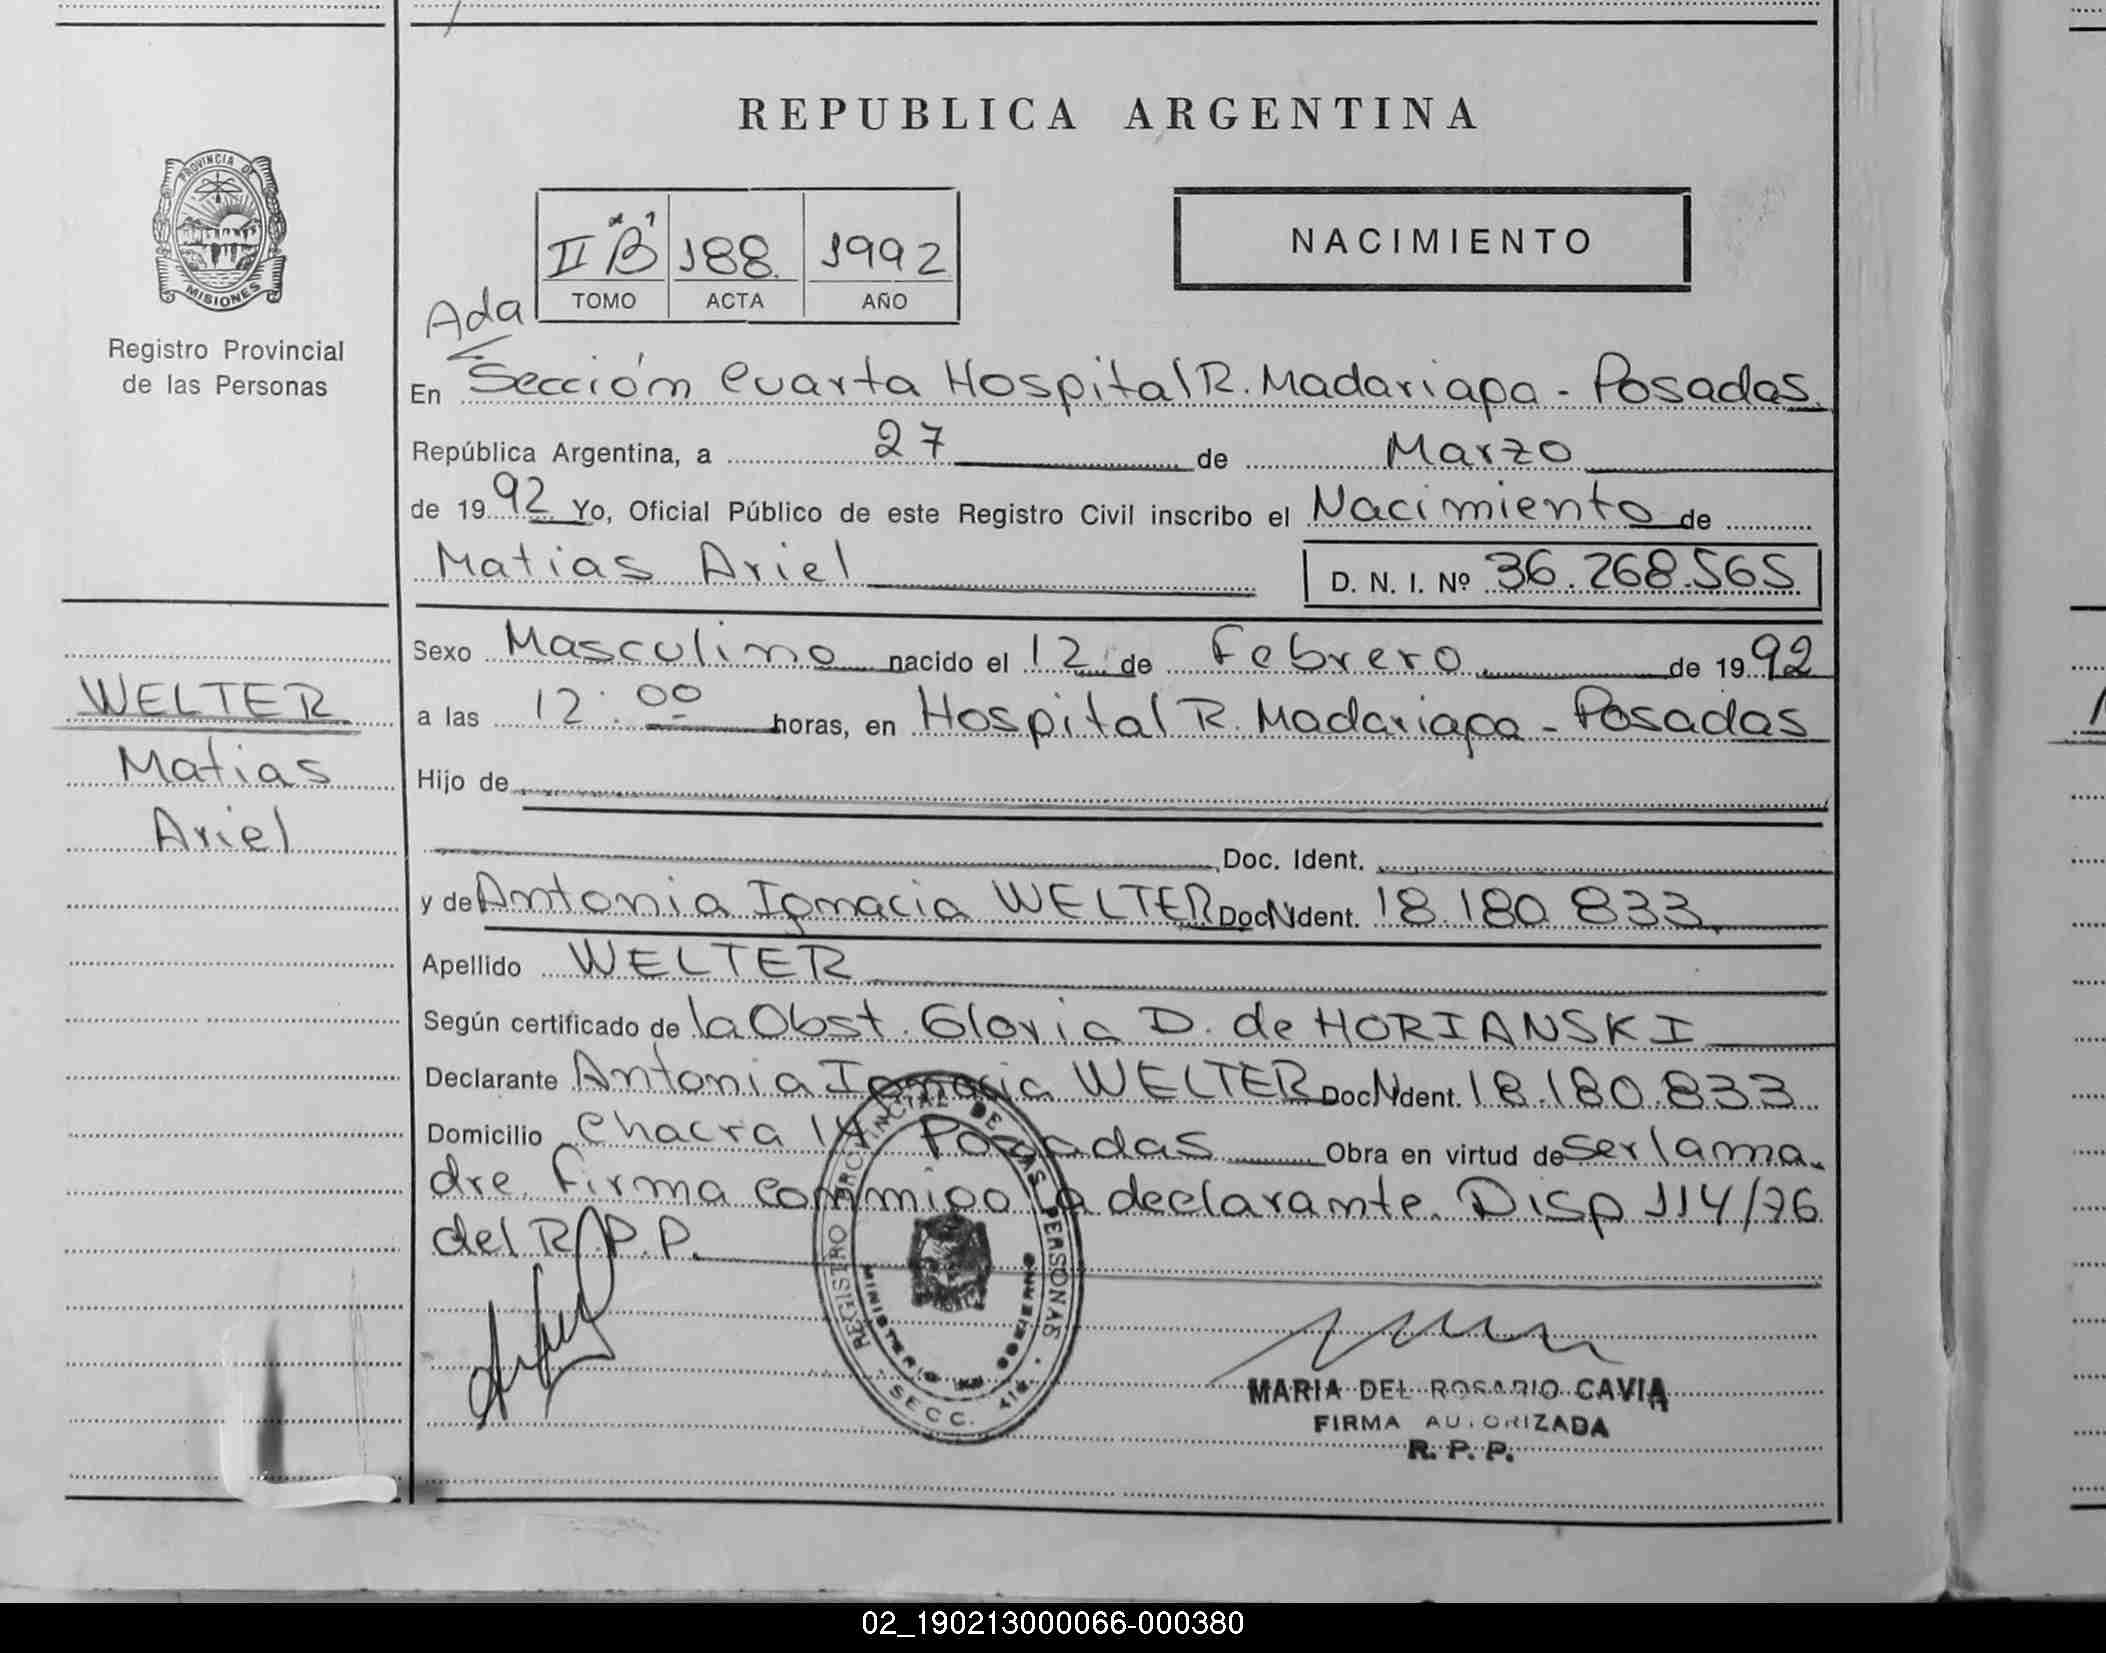 REPUBLICA ARGENTINA
PROVINCIA DE
MISIONES
Registro Provincial
de las Personas
II "B" 188 1992
TOMO ACTA AÑO
NACIMIENTO
Ada
En Sección Cuarta Hospital R. Madariaga - Posadas.
República Argentina, a 27 de Marzo
de 1992 Yo, Oficial Público de este Registro Civil inscribo el Nacimiento de
Matias Ariel D. N. I. Nº 36.268.565
Sexo Masculino nacido el 12 de Febrero de 1992
WELTER
a las 12:00 horas, en Hospital R. Madariaga - Posadas
Matias
Hijo de
Ariel
Doc. Ident.
y de Antonia Ignacia WELTER Doc N Ident. 18.180.833
Apellido WELTER
Según certificado de la Obst. Gloria D. de HORIANSKI
Declarante Antonia Ignacia WELTER Doc N Ident. 18.180.833
Domicilio Chacra 14 Posadas Obra en virtud de ser la ma
dre. Firma conmigo la declarante. Disp 114/76
del R.P.P.
REGISTRO PROVINCIAL DE LAS PERSONAS
MINISTERIO DE GOBIERNO
SECC. 4ta.
MARIA DEL ROSARIO CAVIA
FIRMA AUTORIZADA
R. P. P.
02_190213000066-000380